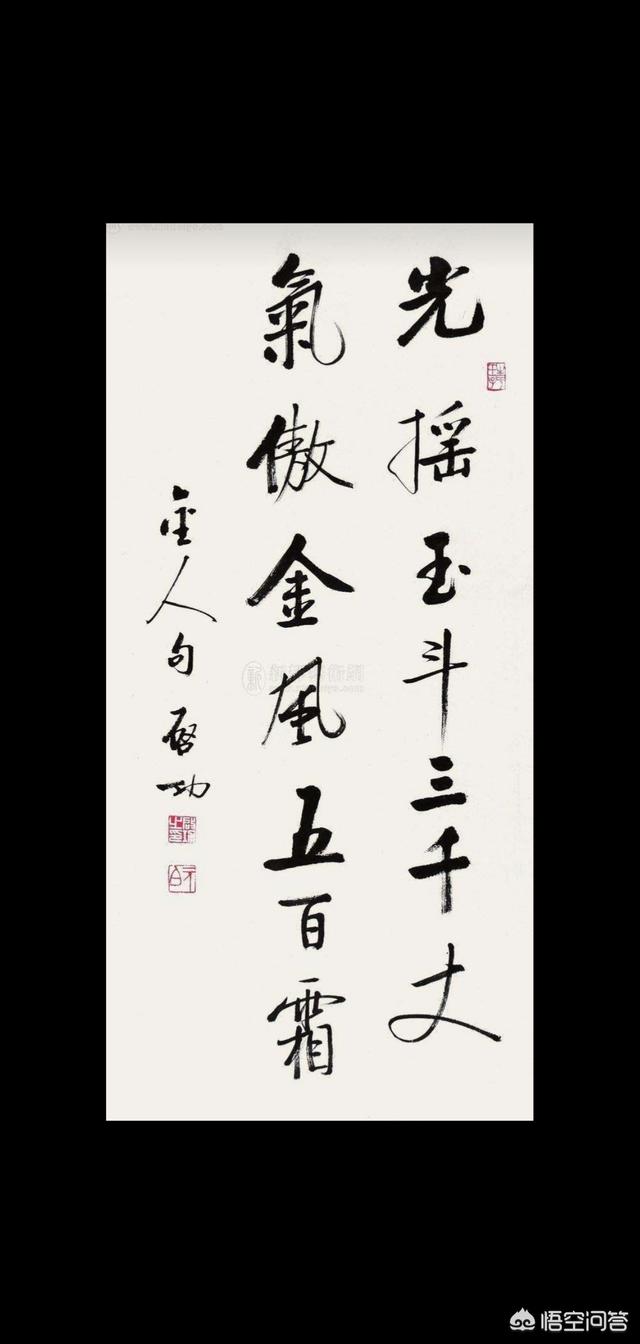 光摇玉斗三千丈
氣傲金風五百霜
金人句 啓功
悟空问答